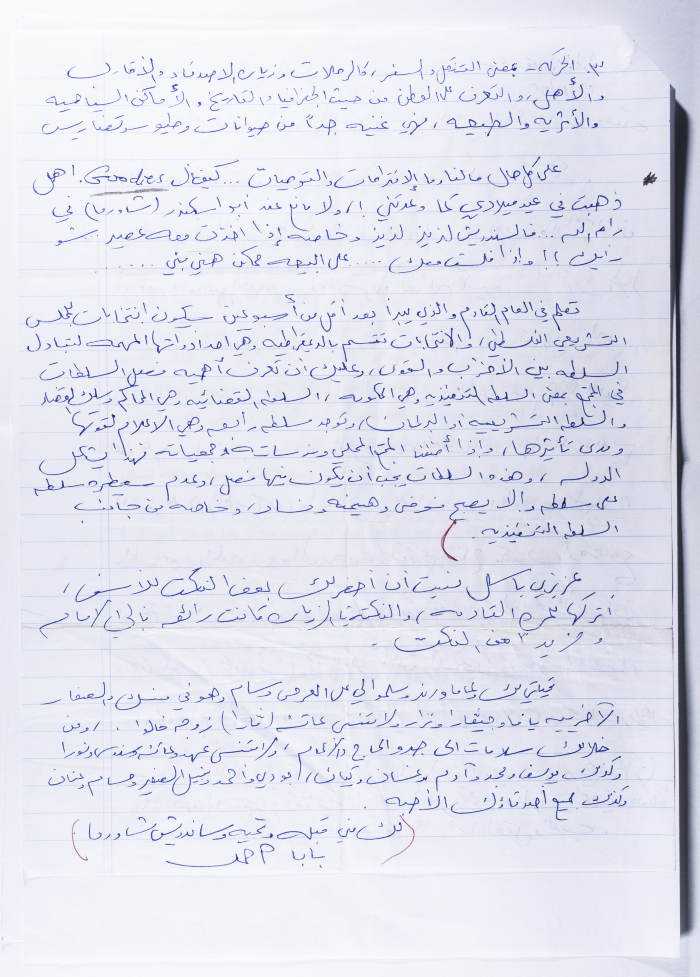 ٣. الحركة - بمعنى التنقل والسفر، كالرحلات وزيارة الاصدقاء والأقارب
والأهل، والتعرف على الوطن من حيث الجغرافيا والتاريخ والأماكن السياحية
والأثرية والطبيعة، فهي غنية جداً من حيوانات وطيور وتضاريس
على كل حال مالنا وما الإقتراحات والتوصيات ... كيف ال Goodies. اهل
ذهبت في عيد ميلادي كما وعدتني!، ولا مانع عند ابو اسكندر (شاورما) في
رام الله ... فالسندويش لذيذ لذيذ وخاصة إذا اخذت معه عصير .. شو
رايك!! وإذا فلست معك .... على البيعة ممكن هني بني ......
تعلم في العام القادم والذي يبدأ بعد أقل من أسبوعين سيكون انتخابات للمجلس
التشريعي الفلسطيني، والانتخابات تتسم بالديمقراطية وهي احد ادواتها المهمة لتبادل
السلطة بين الأحزاب والقوى، وعليك أن تعرف أهمية فصل السلطات
في المجتمع بمعنى السلطة التنفيذية وهي الحكومة، السلطة القضائية وهي المحاكم وسلك القضاء
والسلطة التشريعية أو البرلمان، وتوجد سلطة رابعة وهي الاعلام لقوتها
ومدى تأثيرها، وإذا أضفنا المجتمع المحلي ومؤسساته وجمعياته فهذا يشكل
الدولة، وهذه السلطات يجب أن يكون بينها فصل، وعدم سيطرة سلطة
على سلطة وإلا يصبح فوضى وهيمنة وفساد، وخاصة من جانب
السلطة التنفيذية.
عزيزي باسل نسيت أن أحضر لك بعض النكت للأسف،
أتركها للمرة القادمة، والنكتة زيارة كانت رائعة بالي الأيام
ومزيداً من النكت.
تحياتي لك ولماما ورند وسلموا لي على العرس وسام وهوني وسلك والصغار
الآخرين يافا وجيفارا ونزار ولا تنسى عائشة (تمارا) زوجة خالو، ومن
خلالك سلامات الى جدو الحاج والأعمام، ولا تنسى عهد وعائشة ومهندس ونورا
وكذلك يوسف ومجد وآدم وغسان وكيان، ابو دي وأحمد ونبيل الصغير وحسام وحنان
وكذلك جميع أصدقاؤك الأحبة.
(لك مني قبلة وتحية وساندويش شاورما)
بابا